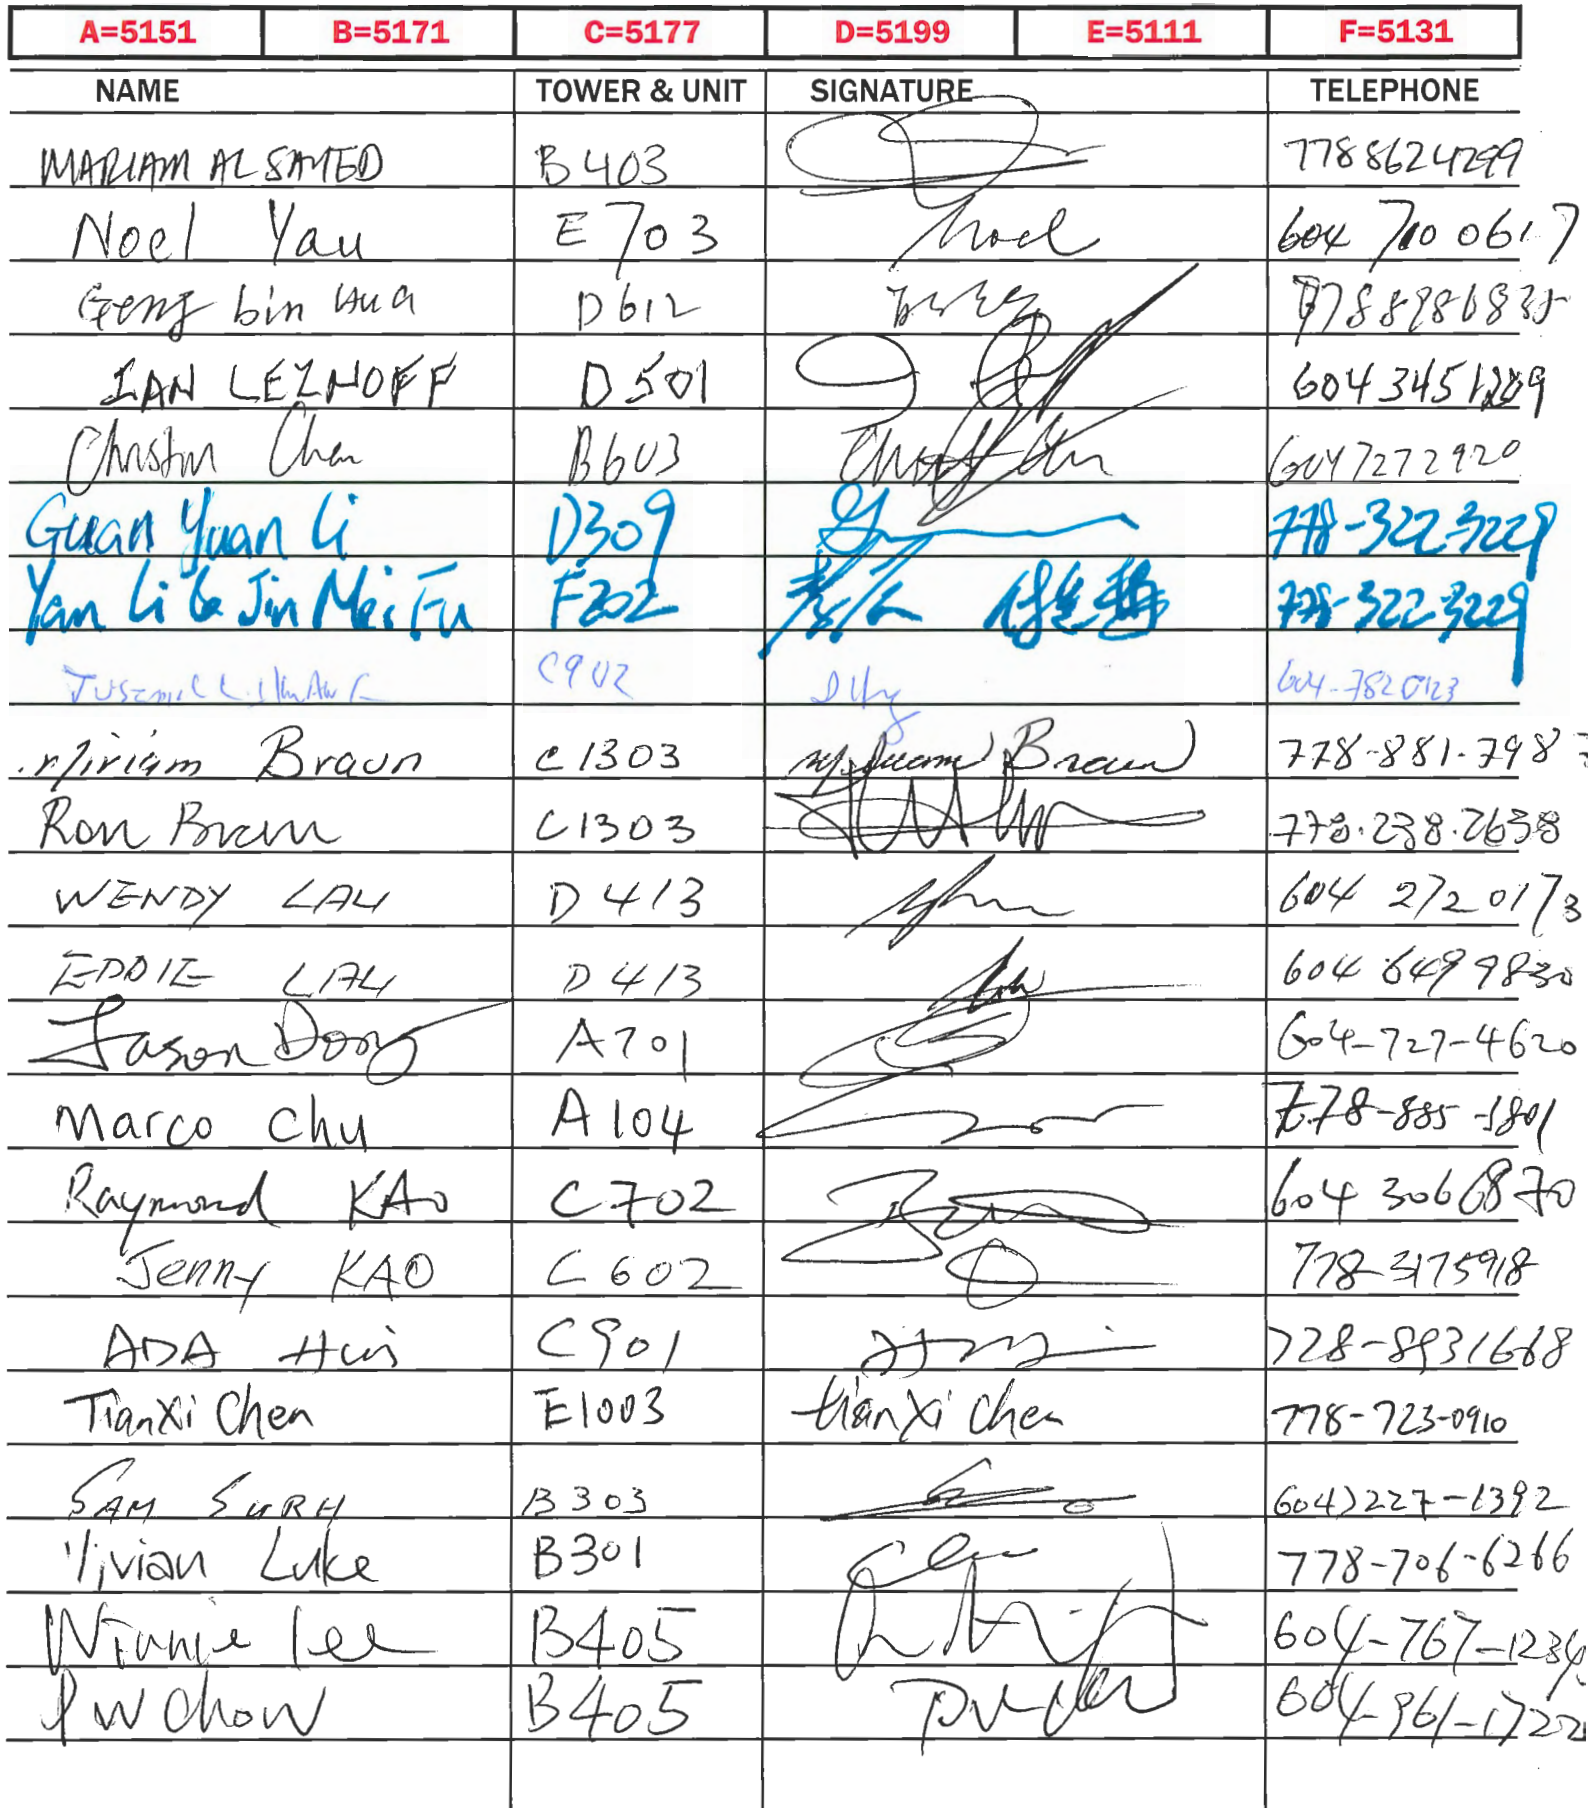 A=5151 B=5171 C=5177 D=5199 E=5111 F=5131
NAME TOWER & UNIT SIGNATURE TELEPHONE
MARIAM ALSAYED B403 7788624299
Noel Yau E703 Noel 604 710 0617
Geng bin Hua D612
IAN LEZNOFF D501
Christin Chen B603 6047272920
Guan Yuan Li D309 778-322-3229
Yan Li & Jin Mei Fu F202 778-322-3229
C902 604-7820123
Miriam Braun C1303 Miriam Braun 778-881-798
Ron Braun C1303 778.238.2638
WENDY LAU D413 604 272 0173
EDDIE LAU D413 604 649 9830
Jason Dong A701 604-727-4620
Marco Chu A104 778-885-3801
Raymond KAO C702 604 306 6870
Jenny KAO C602 778-3175918
ADA Hui C901 728-8931668
TianXi Chen E1003 tianXi Chen 778-723-0910
SAM SURH B303 604)227-1392
Vivian Luke B301 778-706-6266
Winnie Lee B405 604-767-1234
PW Chow B405 604-961-1722